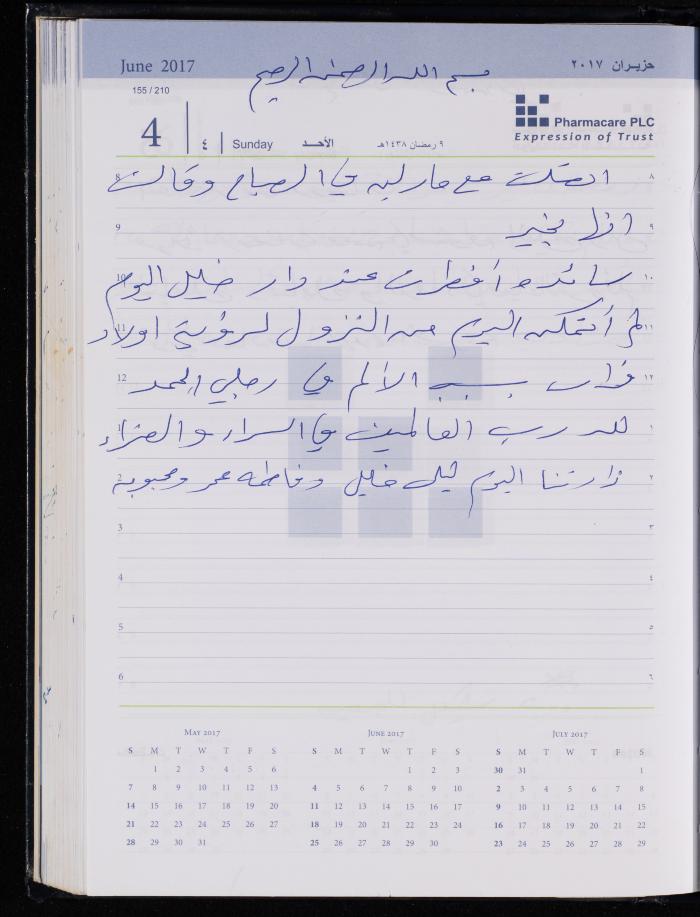 June 2017
حزيران ٢٠١٧
بسم الله الرحمن الرحيم
155 / 210
4
٤
Sunday
الأحــد
٩ رمضان ١٤٣٨هـ
Pharmacare PLC
Expression of Trust
8 اتصلت مع ماريه في الصباح وقالت ٨
9 انها بخير ٩
10 سائده أفطرت عند دار خليل اليوم ١٠
11 لم أتمكن اليوم من النزول لرؤية اولاد ١١
12 بسبب الألم في رجلي الحمد ١٢
1 لله رب العالمين في السراء والضراء ١
2 زارتنا اليوم ليلى خليل وفاطمه عمر ومحبوبه ٢
3 ٣
4 ٤
5 ٥
6 ٦
MAY 2017
S M T W T F S
1 2 3 4 5 6
7 8 9 10 11 12 13
14 15 16 17 18 19 20
21 22 23 24 25 26 27
28 29 30 31
JUNE 2017
S M T W T F S
1 2 3
4 5 6 7 8 9 10
11 12 13 14 15 16 17
18 19 20 21 22 23 24
25 26 27 28 29 30
JULY 2017
S M T W T F S
30 31 1
2 3 4 5 6 7 8
9 10 11 12 13 14 15
16 17 18 19 20 21 22
23 24 25 26 27 28 29